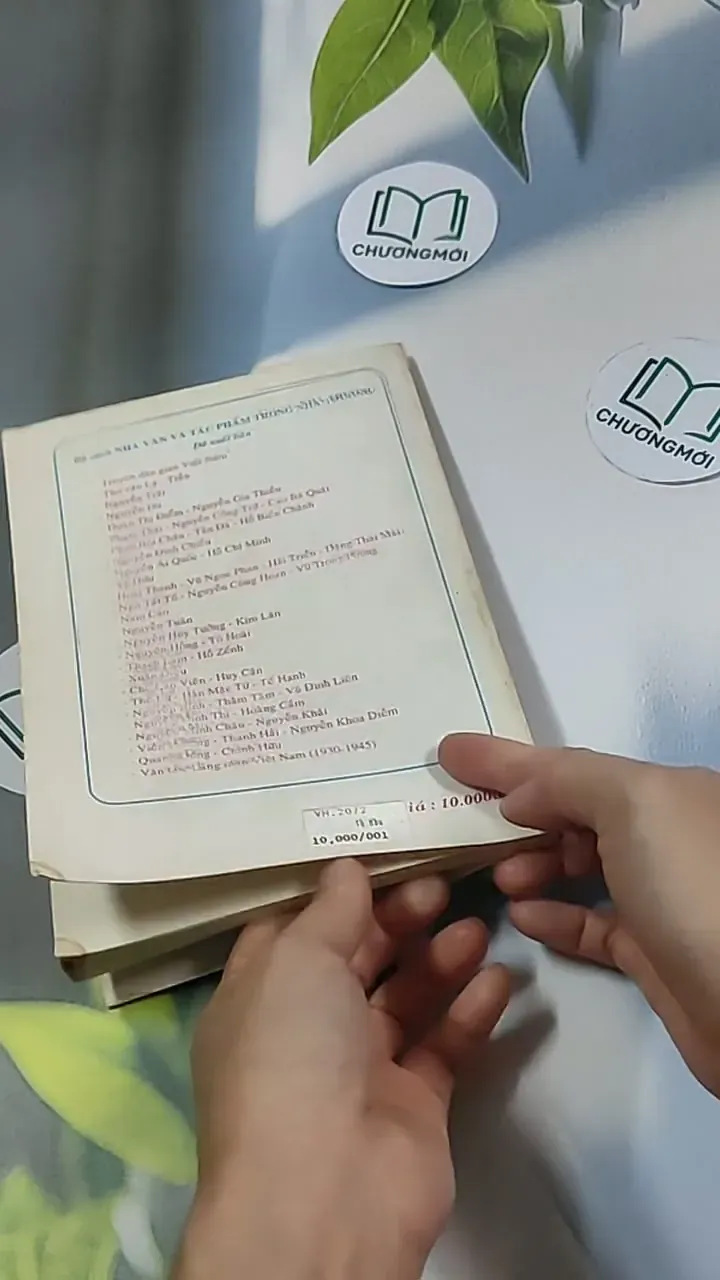 CHƯƠNGMỚI
CHƯƠNGMỚI
NHÀ VĂN VÀ TÁC PHẨM TRONG NHÀ TRƯỜNG
Đã xuất bản
Truyện dân gian Việt Nam
Thơ văn Lý - Trần
Nguyễn Trãi
Nguyễn Du
Đoàn Thị Điểm - Nguyễn Gia Thiều
Nguyễn Công Trứ - Cao Bá Quát
Phan Bội Châu - Tản Đà - Hồ Biểu Chánh
Nguyễn Đình Chiểu
Nguyễn Ái Quốc - Hồ Chí Minh
Tố Hữu
Hoài Thanh - Vũ Ngọc Phan - Hải Triều - Đặng Thai Mai
Ngô Tất Tố - Nguyễn Công Hoan - Vũ Trọng Phụng
Nam Cao
Nguyễn Tuân
Nguyễn Huy Tưởng - Kim Lân
- Nguyên Hồng - Tô Hoài
- Thạch Lam - Hồ Zếnh
- Xuân Diệu
- Chế Lan Viên - Huy Cận
- Hàn Mặc Tử - Tế Hanh
- Thâm Tâm - Vũ Đình Liên
- Nguyễn Đình Thi - Hoàng Cầm
- Nguyễn Minh Châu - Nguyễn Khải
- Viễn Phương - Thanh Hải - Nguyễn Khoa Điềm
Quang Dũng - Chính Hữu
- Việt Nam (1930-1945)
VH.20/2
10.000/001
iá : 10.000